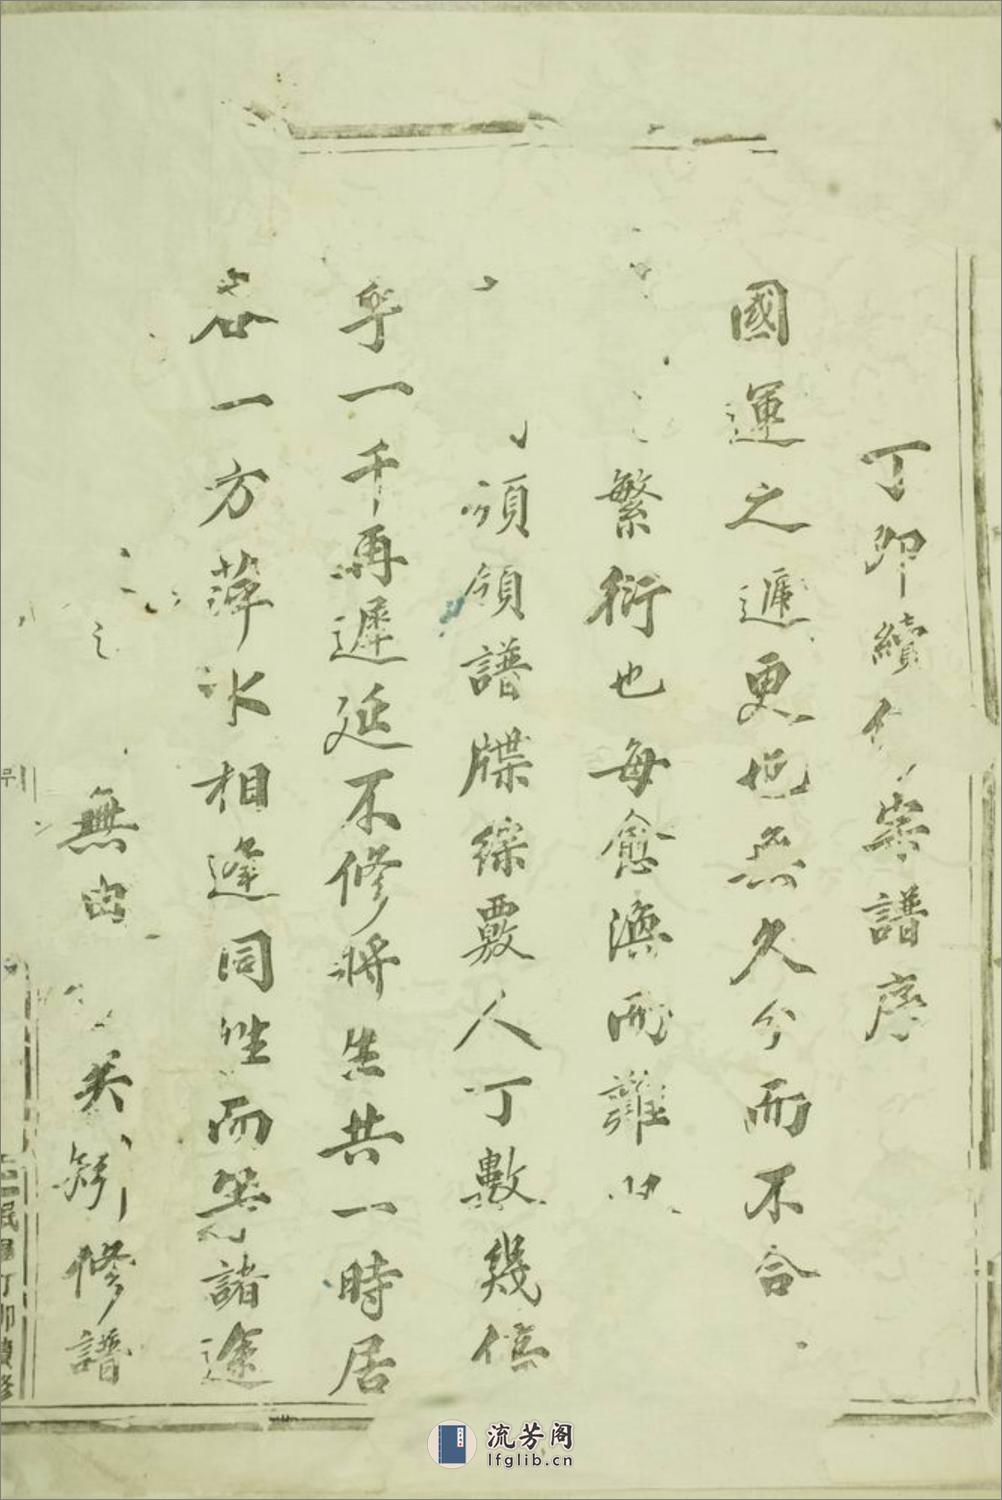 丁卯續修宗譜序
國運之遞更也無久今而不合
繁衍也每愈渙而難
頒領譜牒綜覈人丁數幾倍
乎一千再遲延不修將生共一時居
各一方萍水相逢同姓而等諸途
之 無由 矣 修譜
民國丁卯續修
流芳阁
lfglib.cn